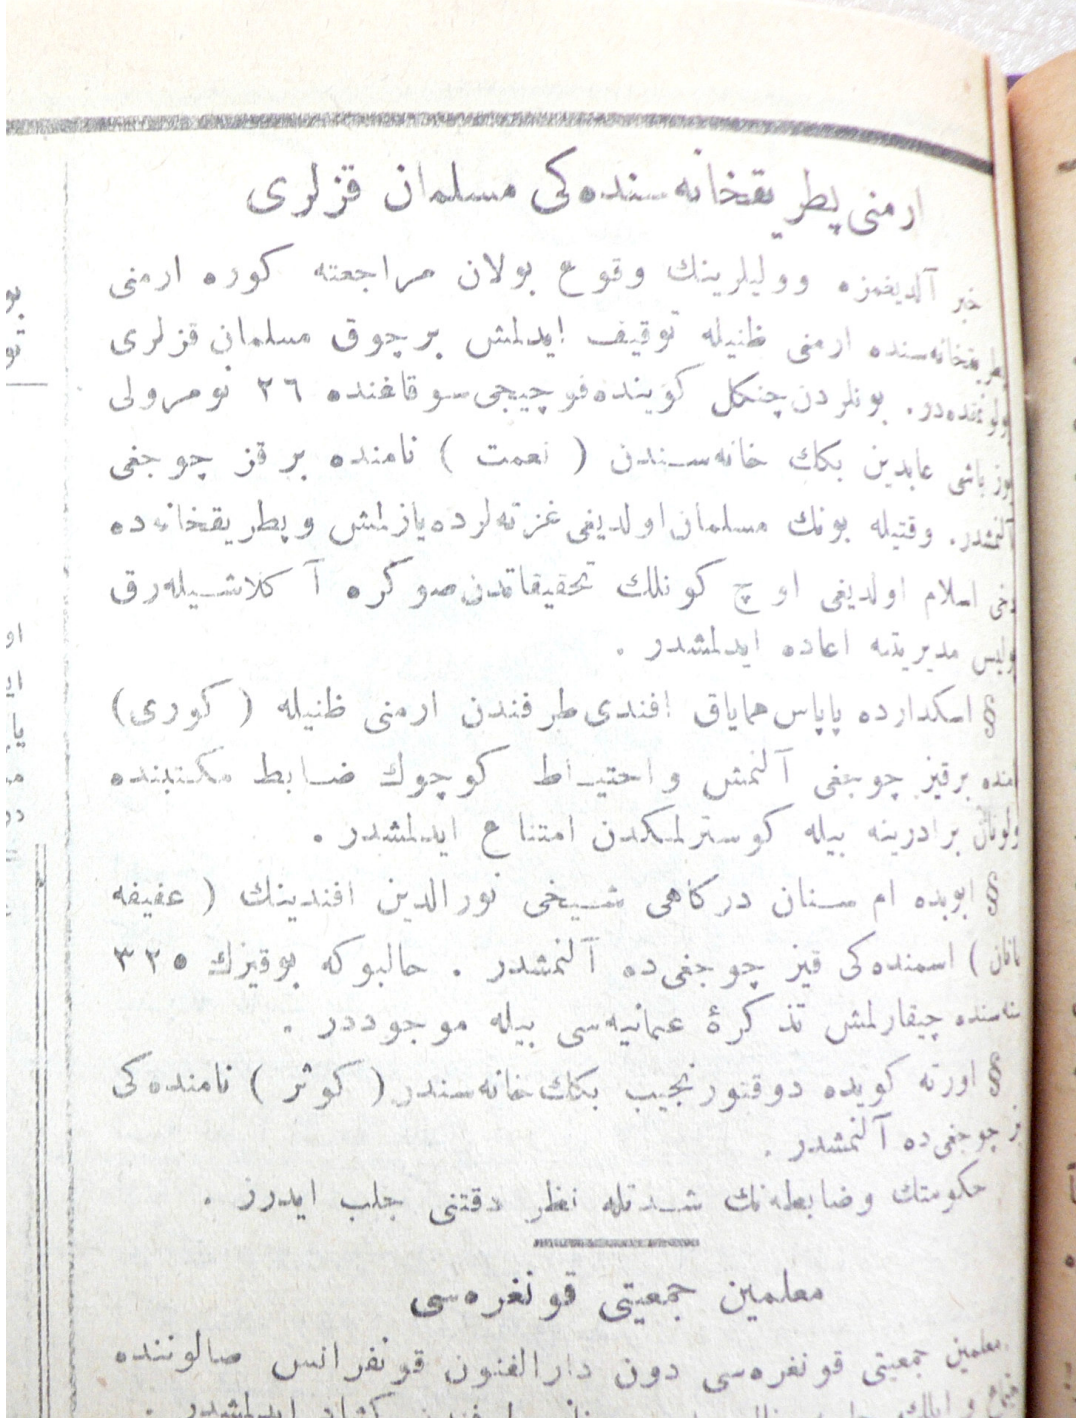 ارمنی پطریقخانه‌سنده‌کی مسلمان قزلری
خبر آلدیغمزه وولیلرینك وقوع بولان مراجعته کوره ارمنی
پطریقخانه‌سنده ارمنی ظنیله توقیف ایدلمش برچوق مسلمان قزلری
بولونمقده‌در. بونلردن چنکل کوینده فوچیجی سوقاغنده ٢٦ نومرولی
یوزباشی عابدین بکك خانه‌سندن ( نعمت ) نامنده برقز چوجغی
آلنمشدر. وقتیله بونك مسلمان اولدیغی غزته‌لرده یازلمش وپطریقخانه‌ده
دخی اسلام اولدیغی اوچ کونلك تحقیقاتدن صوکره آکلاشیله‌رق
پولیس مدیریتنه اعاده ایدلمشدر .
§ اسکدارده پاپاس همایاق افندی طرفندن ارمنی ظنیله ( کوری)
نامنده برقیز چوجغی آلنمش واحتیاط کوچوك ضابط مکتبنده
بولونان برادرینه بیله کوسترلمکدن امتناع ایدلمشدر .
§ ایوبده ام سنان درکاهی شیخی نورالدین افندینك ( عفیفه
جانان ) اسمنده‌کی قیز چوجغی‌ده آلنمشدر . حالبوکه بوقیزك ٣٢٥
سنه‌سنده چیقارلمش تذکرۀ عثمانیه‌سی بیله موجوددر .
§ اورته کویده دوقتور نجیب بکك خانه‌سندن ( کوثر ) نامنده‌کی
قیز چوجغی‌ده آلنمشدر .
حکومتك وضابطه‌نك شدتله نظر دقتنی جلب ایدرز .
معلمین جمعیتی قونغره‌سی
معلمین جمعیتی قونغره‌سی دون دارالفنون قونفرانس صالوننده